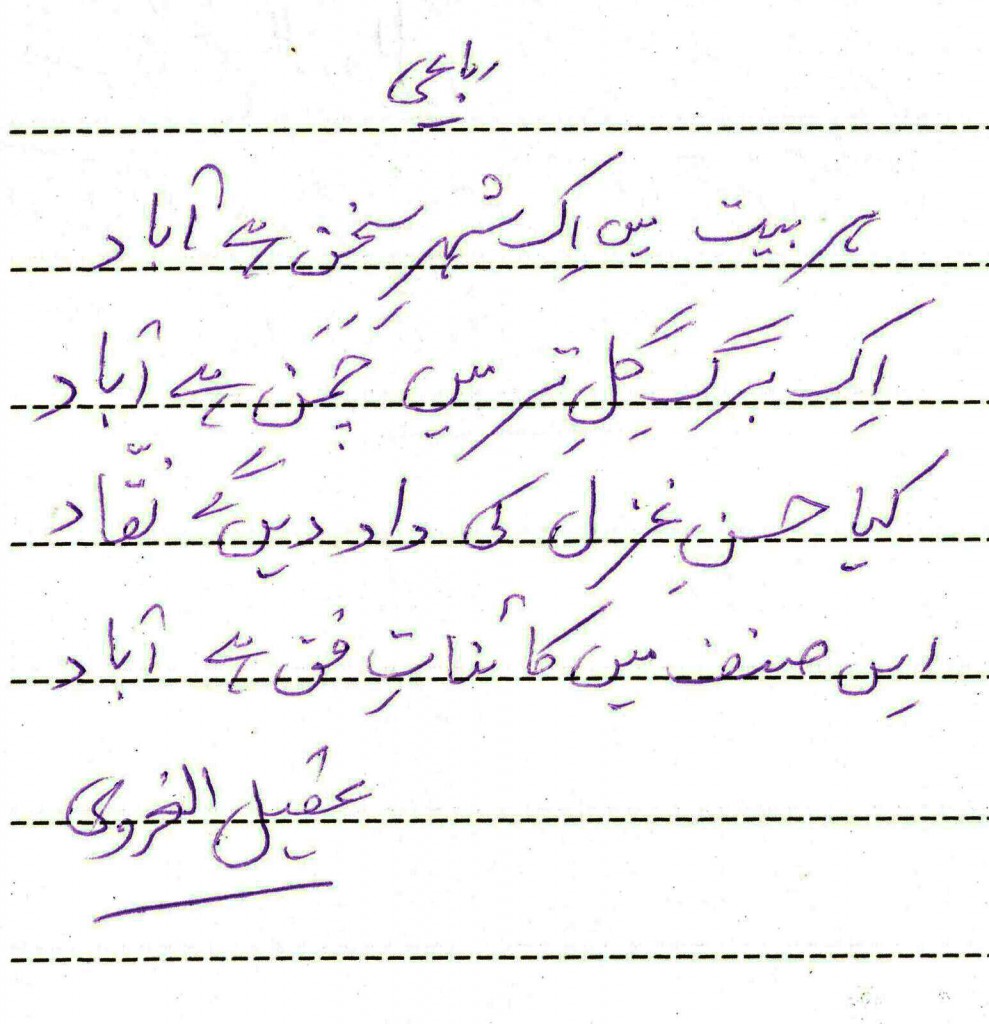 رباعی
ہر بیت میں اِک شہرِ سخن ہے آباد
اِک برگِ گلِ تر میں چَمَن ہے آباد
کیا حسنِ غزل کی داد دیں گے نقّاد
اِس صنف میں کائناتِ فن ہے آباد
عقیل الغروی